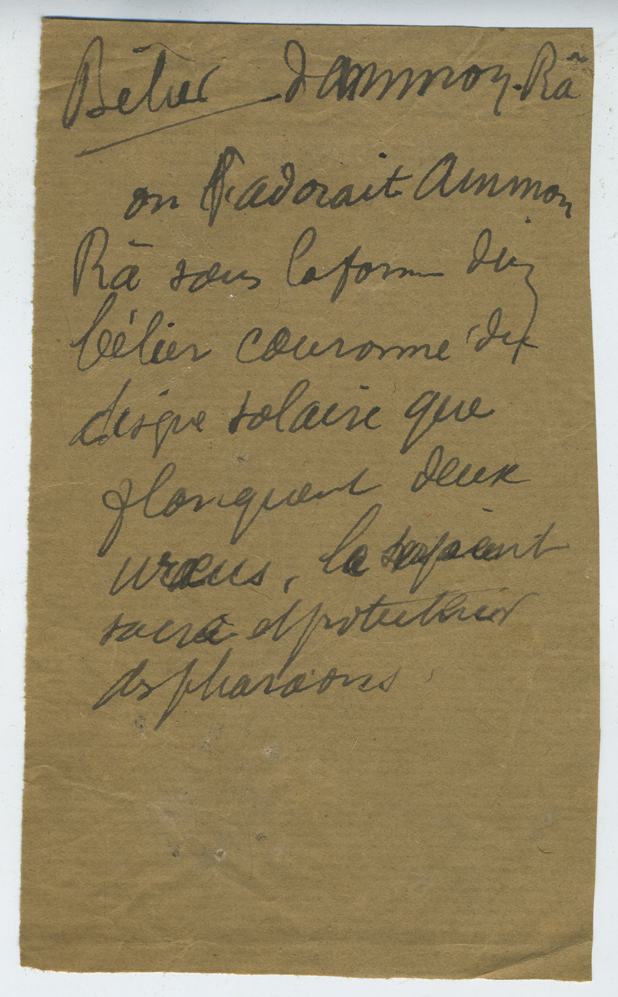 Bélier d'ammon-Râ
on l'adorait Ammon
Râ sous la forme d'un
bélier couronné du
disque solaire que
flanquent deux
uraeus, le serpent
sacré et protecteur
des pharaons